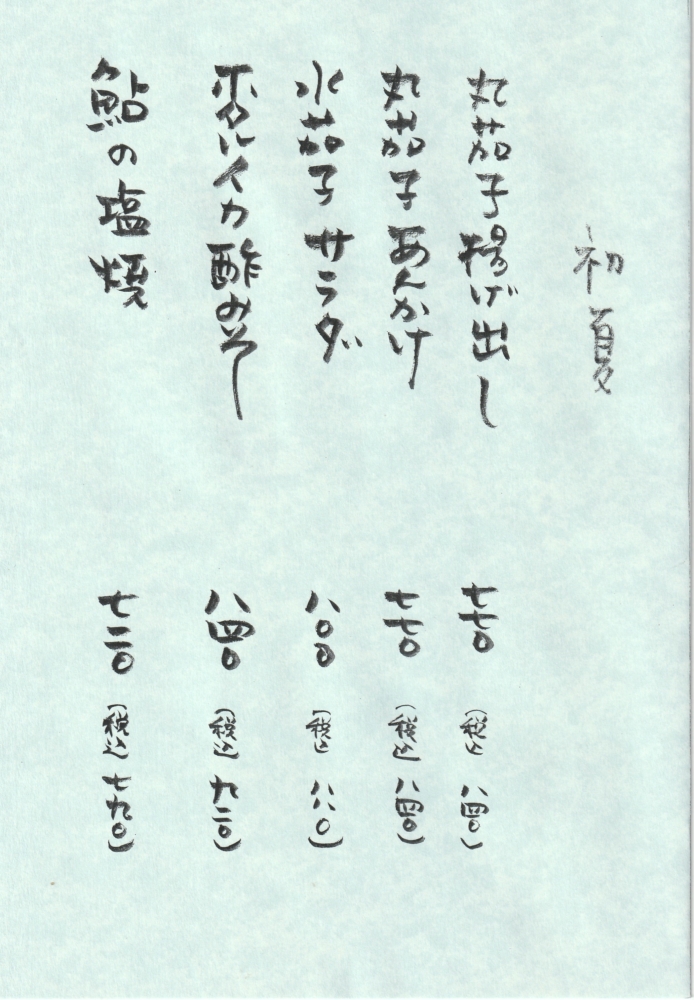 初夏
丸茄子揚げ出し 七七〇 (税込 八四〇)
丸茄子あんかけ 七七〇 (税込 八四〇)
水茄子サラダ 八〇〇 (税込 八八〇)
ホタルイカ酢みそ 八四〇 (税込 九二〇)
鮎の塩焼 七二〇 (税込 七九〇)